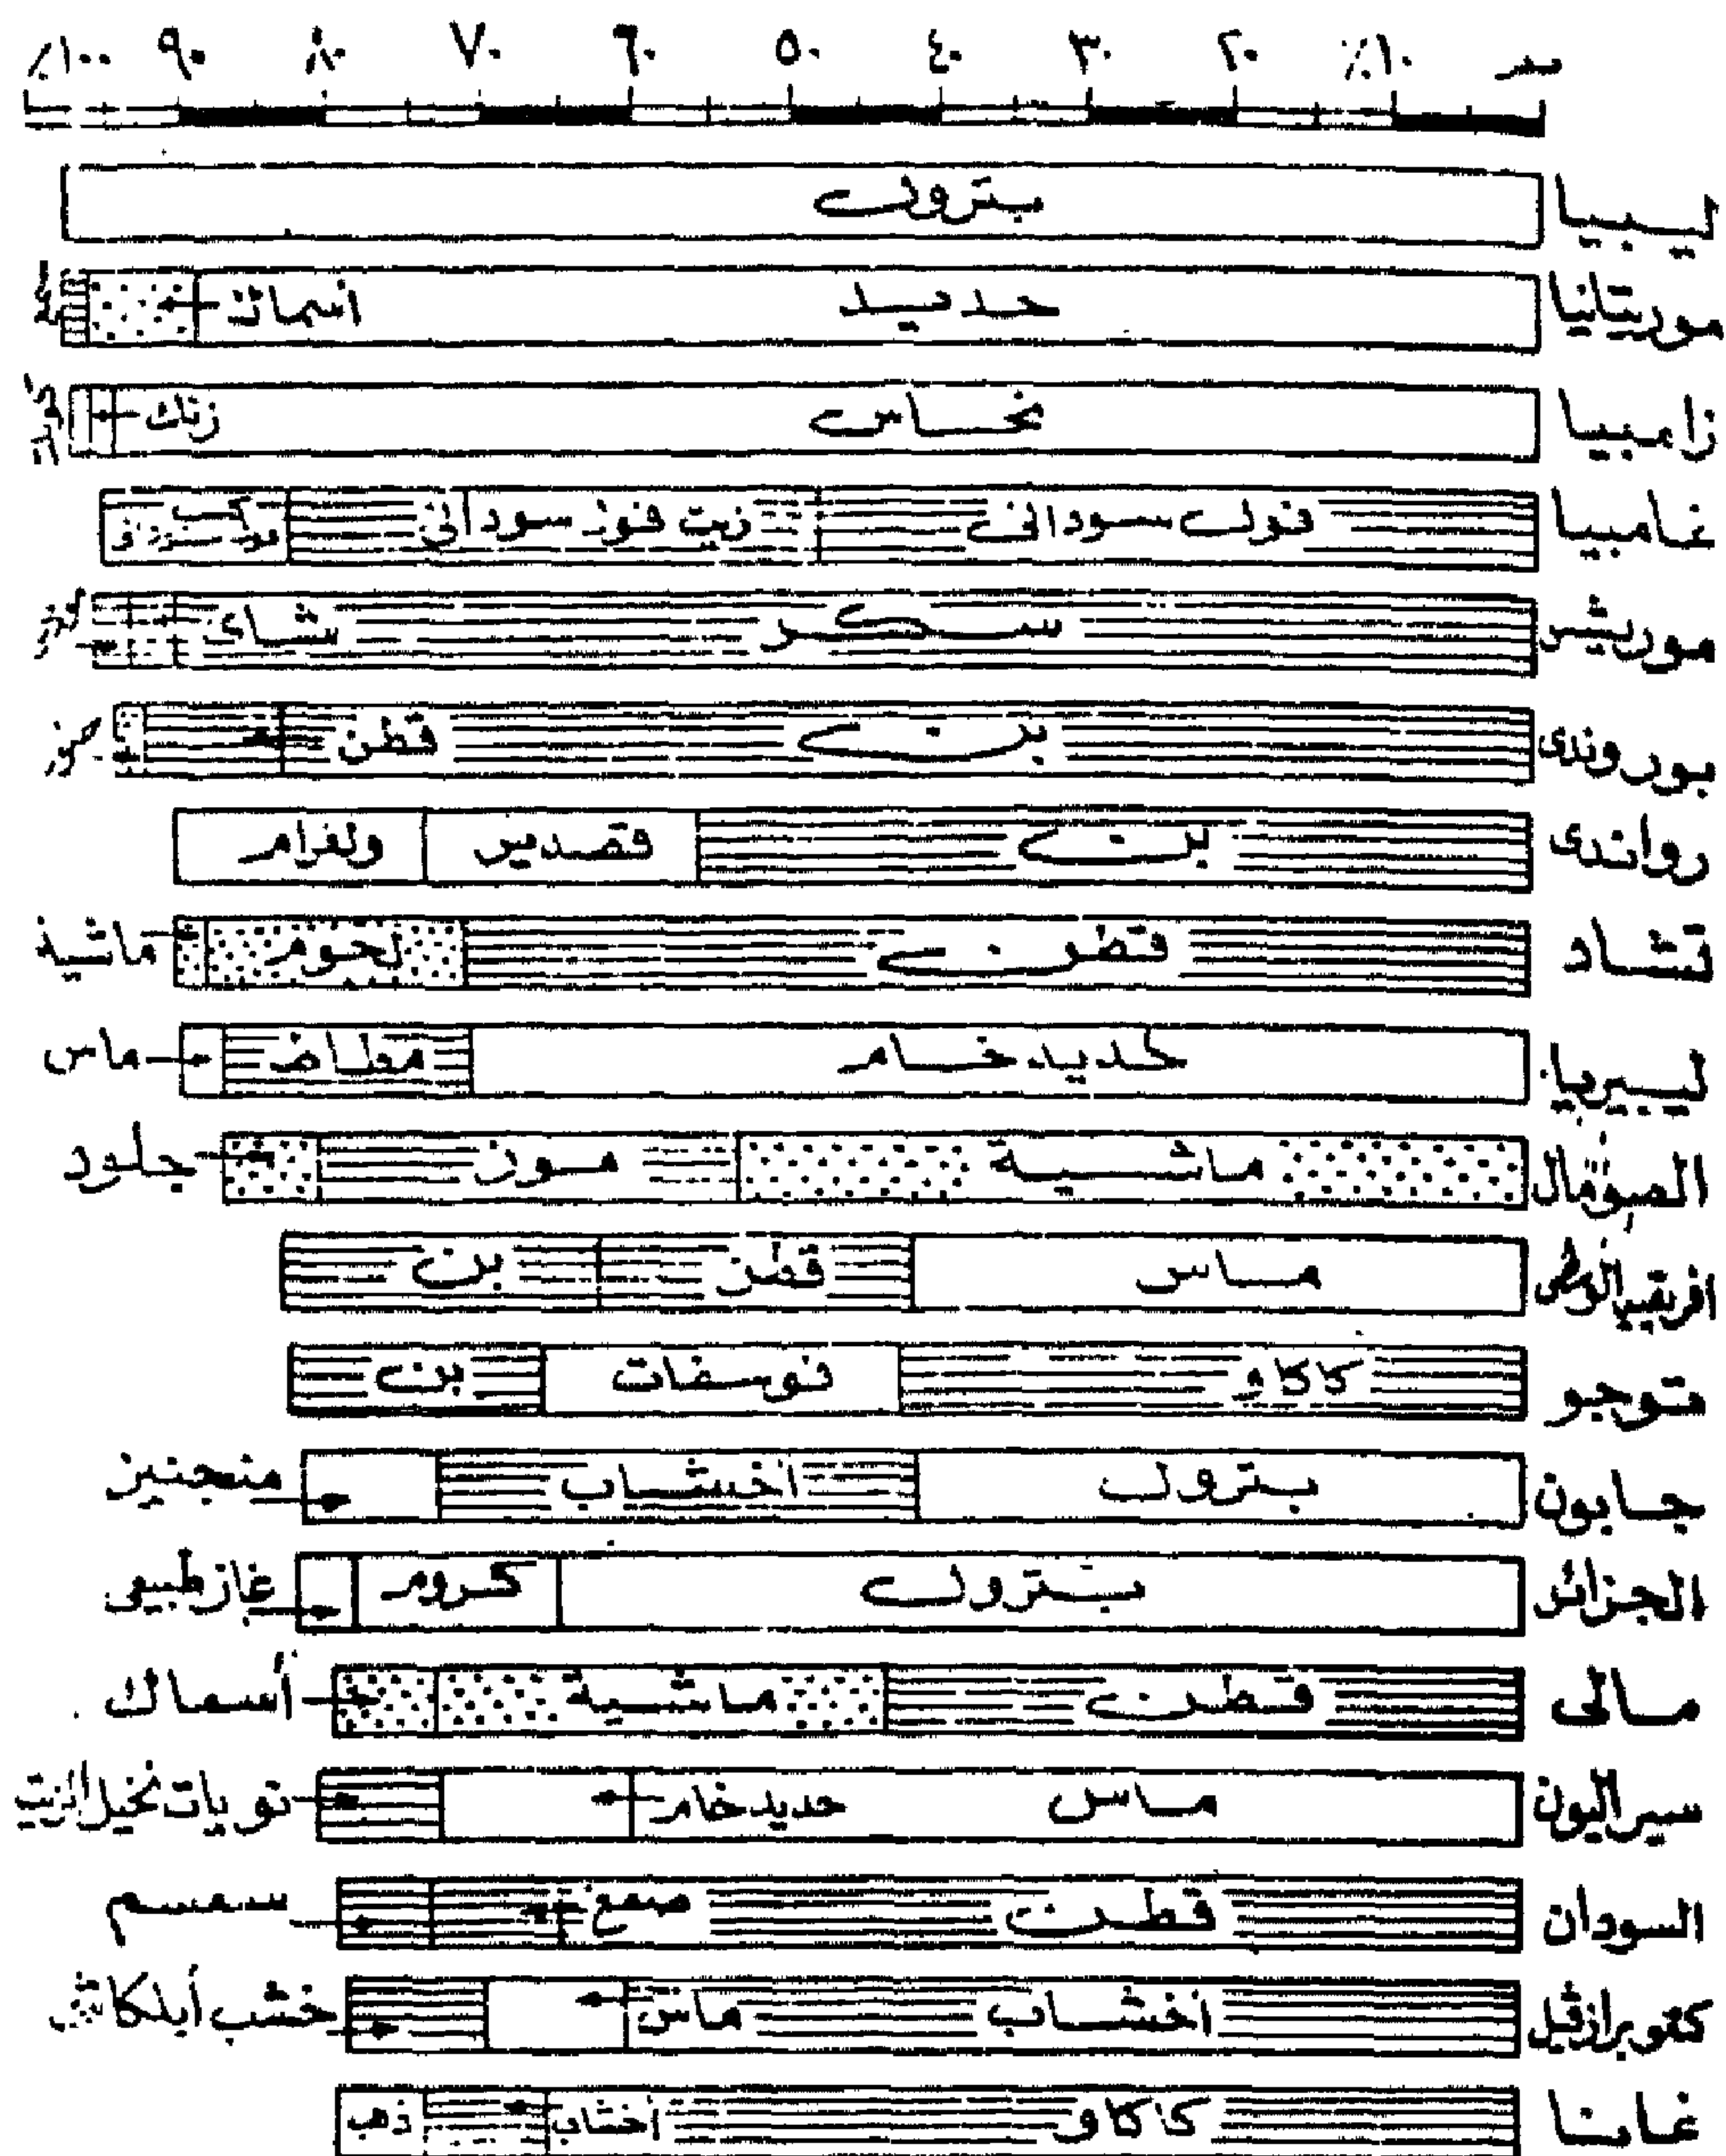 صفر ١٠٪ ٢٠ ٣٠ ٤٠ ٥٠ ٦٠ ٧٠ ٨٠ ٩٠ ١٠٠٪
ليبيا بترول
موريتانيا حديد أسماك
زامبيا نحاس زنك
غامبيا فول سوداني زيت فول سوداني كسب
موريشس سكر شاي
بوروندى بن قطن
رواندى بن قصدير ولفرام
تشاد قطن لحوم ماشية
ليبيريا حديد خام مطاط ماس
الصومال ماشية موز جلود
افريقيا الوسطى ماس قطن بن
توجو كاكاو فوسفات بن
جابون بترول أخشاب منجنيز
الجزائر بترول كروم غاز طبيعى
مالى قطن ماشية أسماك
سيراليون ماس حديد خام نويات نخيل الزيت
السودان قطن صمغ سمسم
كنغو برازفيل أخشاب ماس خشب أبلكاش
غانا كاكاو أخشاب ذهب